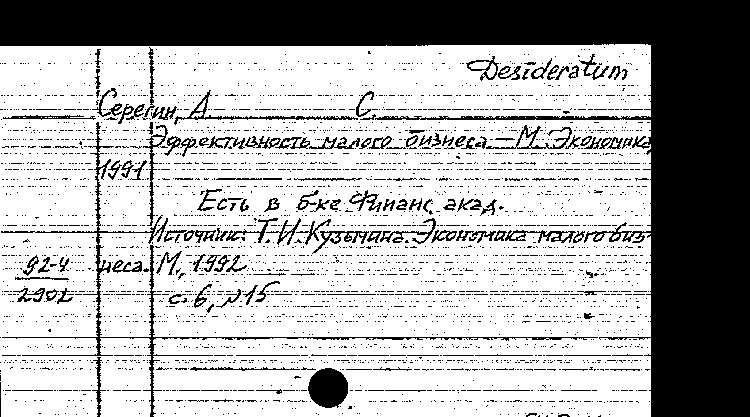 Desideratum
Серегин, А. С.
Эффективность малого бизнеса. — М. Экономика,
1991
Есть в б-ке Финанс. акад.
Источник: Т. И. Кузьмина. Экономика малого биз-
92-4 неса. М., 1992
2902 с. 6, №15